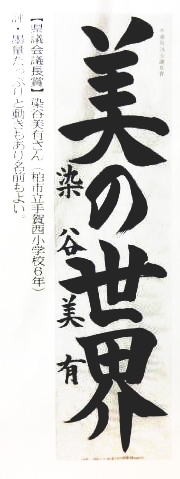 美の世界
染谷美有
【県議会議長賞】染谷美有さん(柏市立手賀西小学校6年)
評・墨量たっぷりと動きもあり名前もよい。